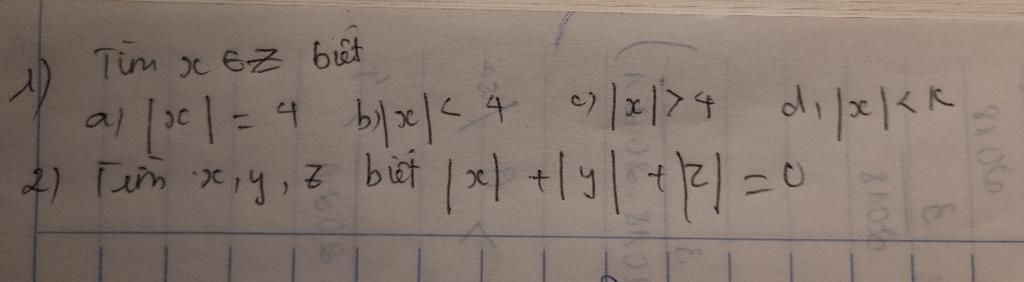 1) Tìm x ∈ Z biết
a) |x| = 4 b) |x| < 4 c) |x| > 4 d, |x| < K
2) Tìm x, y, z biết |x| + |y| + |z| = 0